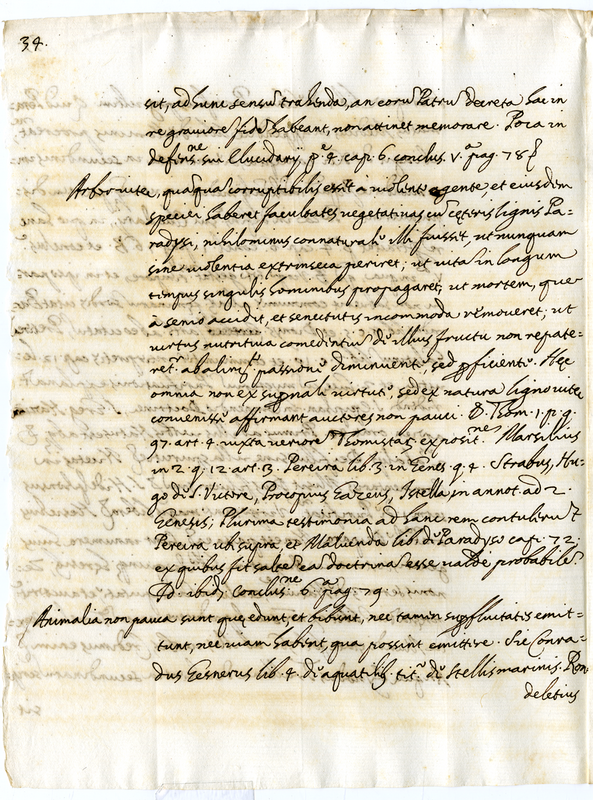 34.
sit, ad hunc sensū trahenda, an eorū Patrū decreta hac in
re graviorē fidē habeant, non attinet memorare. Poza in
defens.ne sui Elucidarij p.e 4. cap. 6. conclus. v.a pag. 78
Arbor vitæ, quāquā corruptibilis esset a violento agente, et eiusdem
speciei haberet facultates vegetativas cū cęteris lignis Pa=
radysi, nihilominus connaturale illi fuisset, ut nunquam
sine violentia extrinseca periret; ut vitā in longum
tempus singulis hominibus propagaret; ut mortem, quę
à senio accidit, et senectutis incommoda removeret; ut
virtus nutritiva comedentiū de illius fructu non repate=
ret.r ab alim.to passione diminuente, sed pficiente. Hęc
omnia non ex supnāli virtute, sed ex natura ligno vitæ
convenisse affirmant auctores non pauci. D. Thom. 1. p. q.
97. art. 4. iuxta veriorē Thomistaȝ exposit.ne Marsilius
in 2. q. 12. art. 3. Pereira lib. 3. in Genes. q. 4. Strabus, Hu=
go de S. Victore, Procopius Gazeus, Istella in annot. ad 2.
Genesis; Plurima testimonia ad hanc rem contulerūt
Pereira ubi supra, et Maluenda lib. de Paradyso cap. 72;
ex quibus fit saltē eā doctrinā esse valdè probabilē.
Id. ibid. Conclus.ne 6.a pag. 79.
Animalia non pauca sunt quę edunt, et bibunt, nec tamen supfluitates emit=
tunt, nec viam habent, qua possint emittere. Sic Conra=
dus Gesnerus lib. 4. de aquatilib. tit.o de stellis marinis. Ron=
deletius